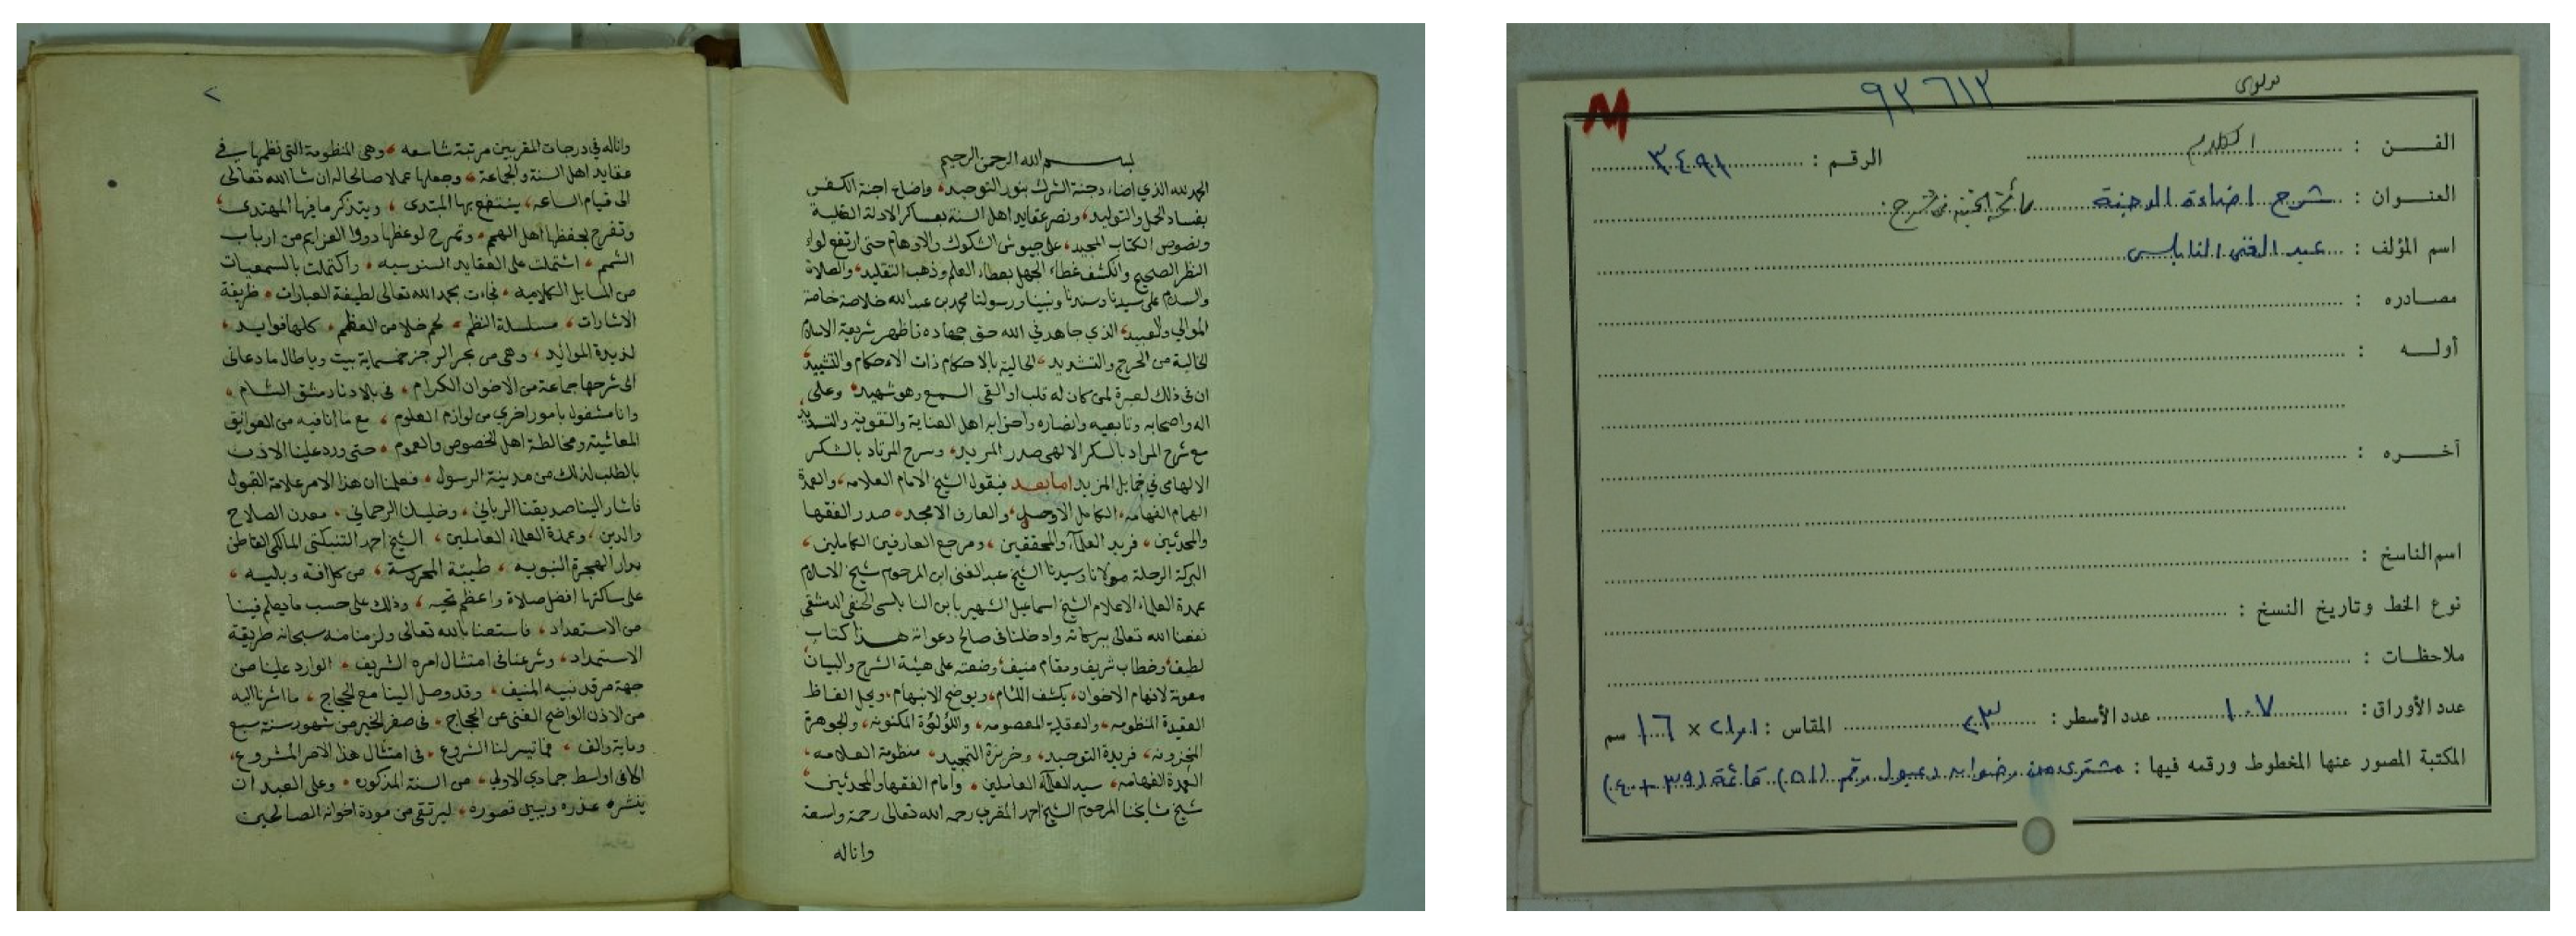 بسم الله الرحمن الرحيم
الحمد لله الذي اضاء دجنة الشرك بنور التوحيد، واضاح اجنة الكفر
بفساد الحمل والتوليد، ونصر عقايد اهل السنة بعساكر الادلة العقلية
ونصوص الكتاب المجيد، على جيوش الشكوك والاوهام حتى ارتفع لواء
النظر الصحيح وانكشف غطاء الجهل بعطاء العلم وذهب التقليد، والصلاة
والسلام على سيدنا وسندنا ونبينا ورسولنا محمد بن عبد الله خلاصة خاصة
الموالي والعبيد، الذي جاهد في الله حق جهاده فاظهر شريعة الاسلام
الخالية من الحرج والتشديد، الحالية بالاحكام ذات الاحكام والتشييد
ان في ذلك لعبرة لمن كان له قلب او القى السمع وهو شهيد، وعلى
اله واصحابه وتابعيه وانصاره واحزابه اهل العناية والتقوية والتسديد
مع شرح المراد بالسكر الالهي صدر المريد، وسرح المرتاد بالشكر
الالهاي في خمايل المزيد اما بعد فيقول الشيخ الامام العلامه، والعمدة
الهمام الفهامه، الكامل الاوحد، والعارف الامجد، صدر الفقها
والمحدثين، فريد العلماء والمحققين، ومرجع العارفين الكاملين،
البركة الرحلة مولانا وسيدنا الشيخ عبد الغني ابن المرحوم شيخ الاسلام
عمدة العلماء الاعلام الشيخ اسماعيل الشهير بابن النابلسي الحنفي الدمشقي
نفعنا الله تعالى ببركاته وادخلنا في صالح دعواته هذا كتاب
لطيف، وخطاب شريف ومقام منيف، وضعته على هيئة الشرح والبيان
معونة لافهام الاخوان، يكشف اللثام، ويوضح الابهام، ويحل الفاظ
العقيدة المنظومه، والعقلية المعصومه، واللؤلؤة المكنونه، والجوهرة
المخزونه، فريدة التوحيد، وخريزة التمجيد، منظومة العلامه،
العمدة الفهامه، سيد العلماء العاملين، وامام الفقها والمحدثين
شيخ مشايخنا المرحوم الشيخ احمد المقري رحمه الله تعالى رحمة واسعة
واناله
٢
واناله في درجات المقربين مرتبة شاسعه، وهي المنظومة التي نظمها في
عقايد اهل السنة والجماعة، وجعلها عملا صالحا له ان شا الله تعالى
الى قيام الساعه، ينتفع بها المبتدي، ويتذكر ما فيها المهتدي،
وتفرح بحفظها اهل الهمم، وتمرح لوعظها ذووا العزايم من ارباب
الشمم، اشتملت على العقايد السنوسيه، واكتملت بالسمعيات
من المسايل الكلاميه، فجاءت بحمد الله تعالى لطيفة العبارات، ظريفة
الاشارات، مسلسلة النظم، لحم خلا من العظم، كلها فوايد،
لذيذة الموايد، وهي من بحر الرجز خمسماية بيت وياطال ما دعاني
الى شرحها جماعة من الاخوان الكرام، في بلادنا دمشق الشام،
وانا مشغول بامور اخري من لوازم العلوم، مع ما انا فيه من العوايق
المعاشية ومخالطة اهل الخصوص والعموم، حتى ورد علينا الاذن
بالطلب لذلك من مدينة الرسول، فعلمنا ان هذا الامر علامة القبول
فاشار الينا صديقنا الرباني، وخليلنا الرحماني، معدن الصلاح
والدين، وعمدة العلماء العاملين، الشيخ احمد التنبكتي المالكي القاطن
بدار الهجرة النبويه، طيبة المحروسة، من كل افة وبليه،
على ساكنها افضل صلاة واعظم تحيه، وذلك على حسب ما يعلم فينا
من الاستعداد، فاستعنا بالله تعالى ولزمنا منه سبحانه طريقة
الاستمداد، وشرعنا في امتثال امره الشريف، الوارد علينا من
جهة مرقد نبيه المنيف، وقد وصل الينا مع الحجاج، ما اشرنا اليه
من الاذن الواضح الغني عن الحجاج، في صفر الخير من شهور سنة سبع
وماية والف، فما تيسر لنا الشروع، في امتثال هذا الامر المشروع،
الا في اواسط جمادي الاولي، من السنة المذكوره، وعلى العبد ان
ينشر عذره ويبين قصوره، ليرتقي من مودة اخوانه الصالحين
M
٩٢٦١٢
مولوى
الفن : الكلام الرقم : ٣٤٩١
العنوان : شرح اضاءة الدجنة رائحة الجنة في شرح
اسم المؤلف : عبد الغني النابلسي
مصادره :
أوله :
آخره :
اسم الناسخ :
نوع الخط وتاريخ النسخ :
ملاحظات :
عدد الأوراق : ١٠٧ عدد الأسطر : ٢٣ المقاس : ٢١ × ١٦ سم
المكتبة المصور عنها المخطوط ورقمه فيها : مشترى من رضوان دعبول رقم (٥١) قائمة (٣٩ + ٤٠)